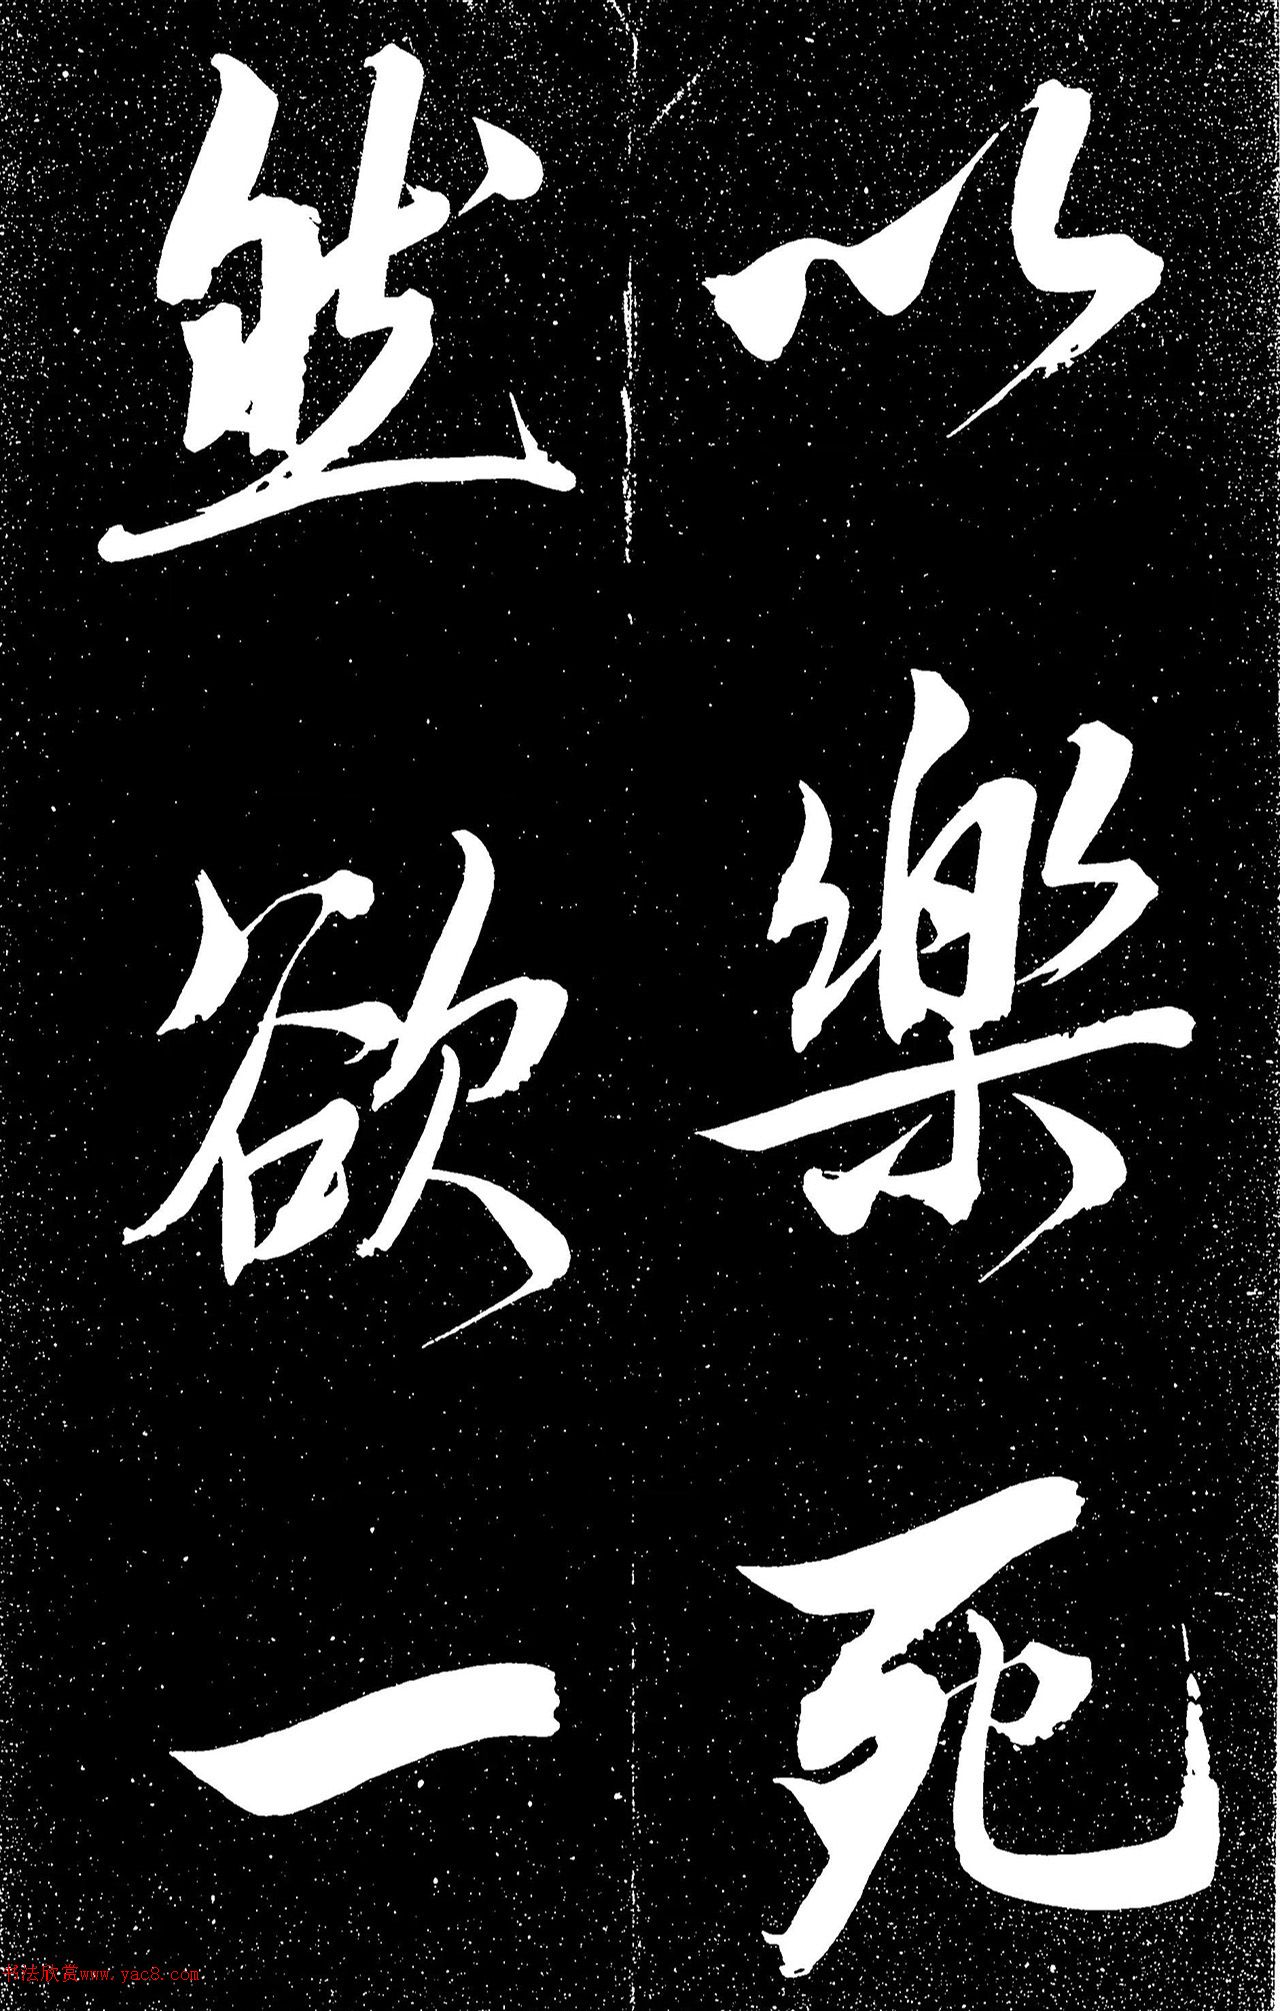 以樂死
然欲一
书法欣赏www.yac8.com